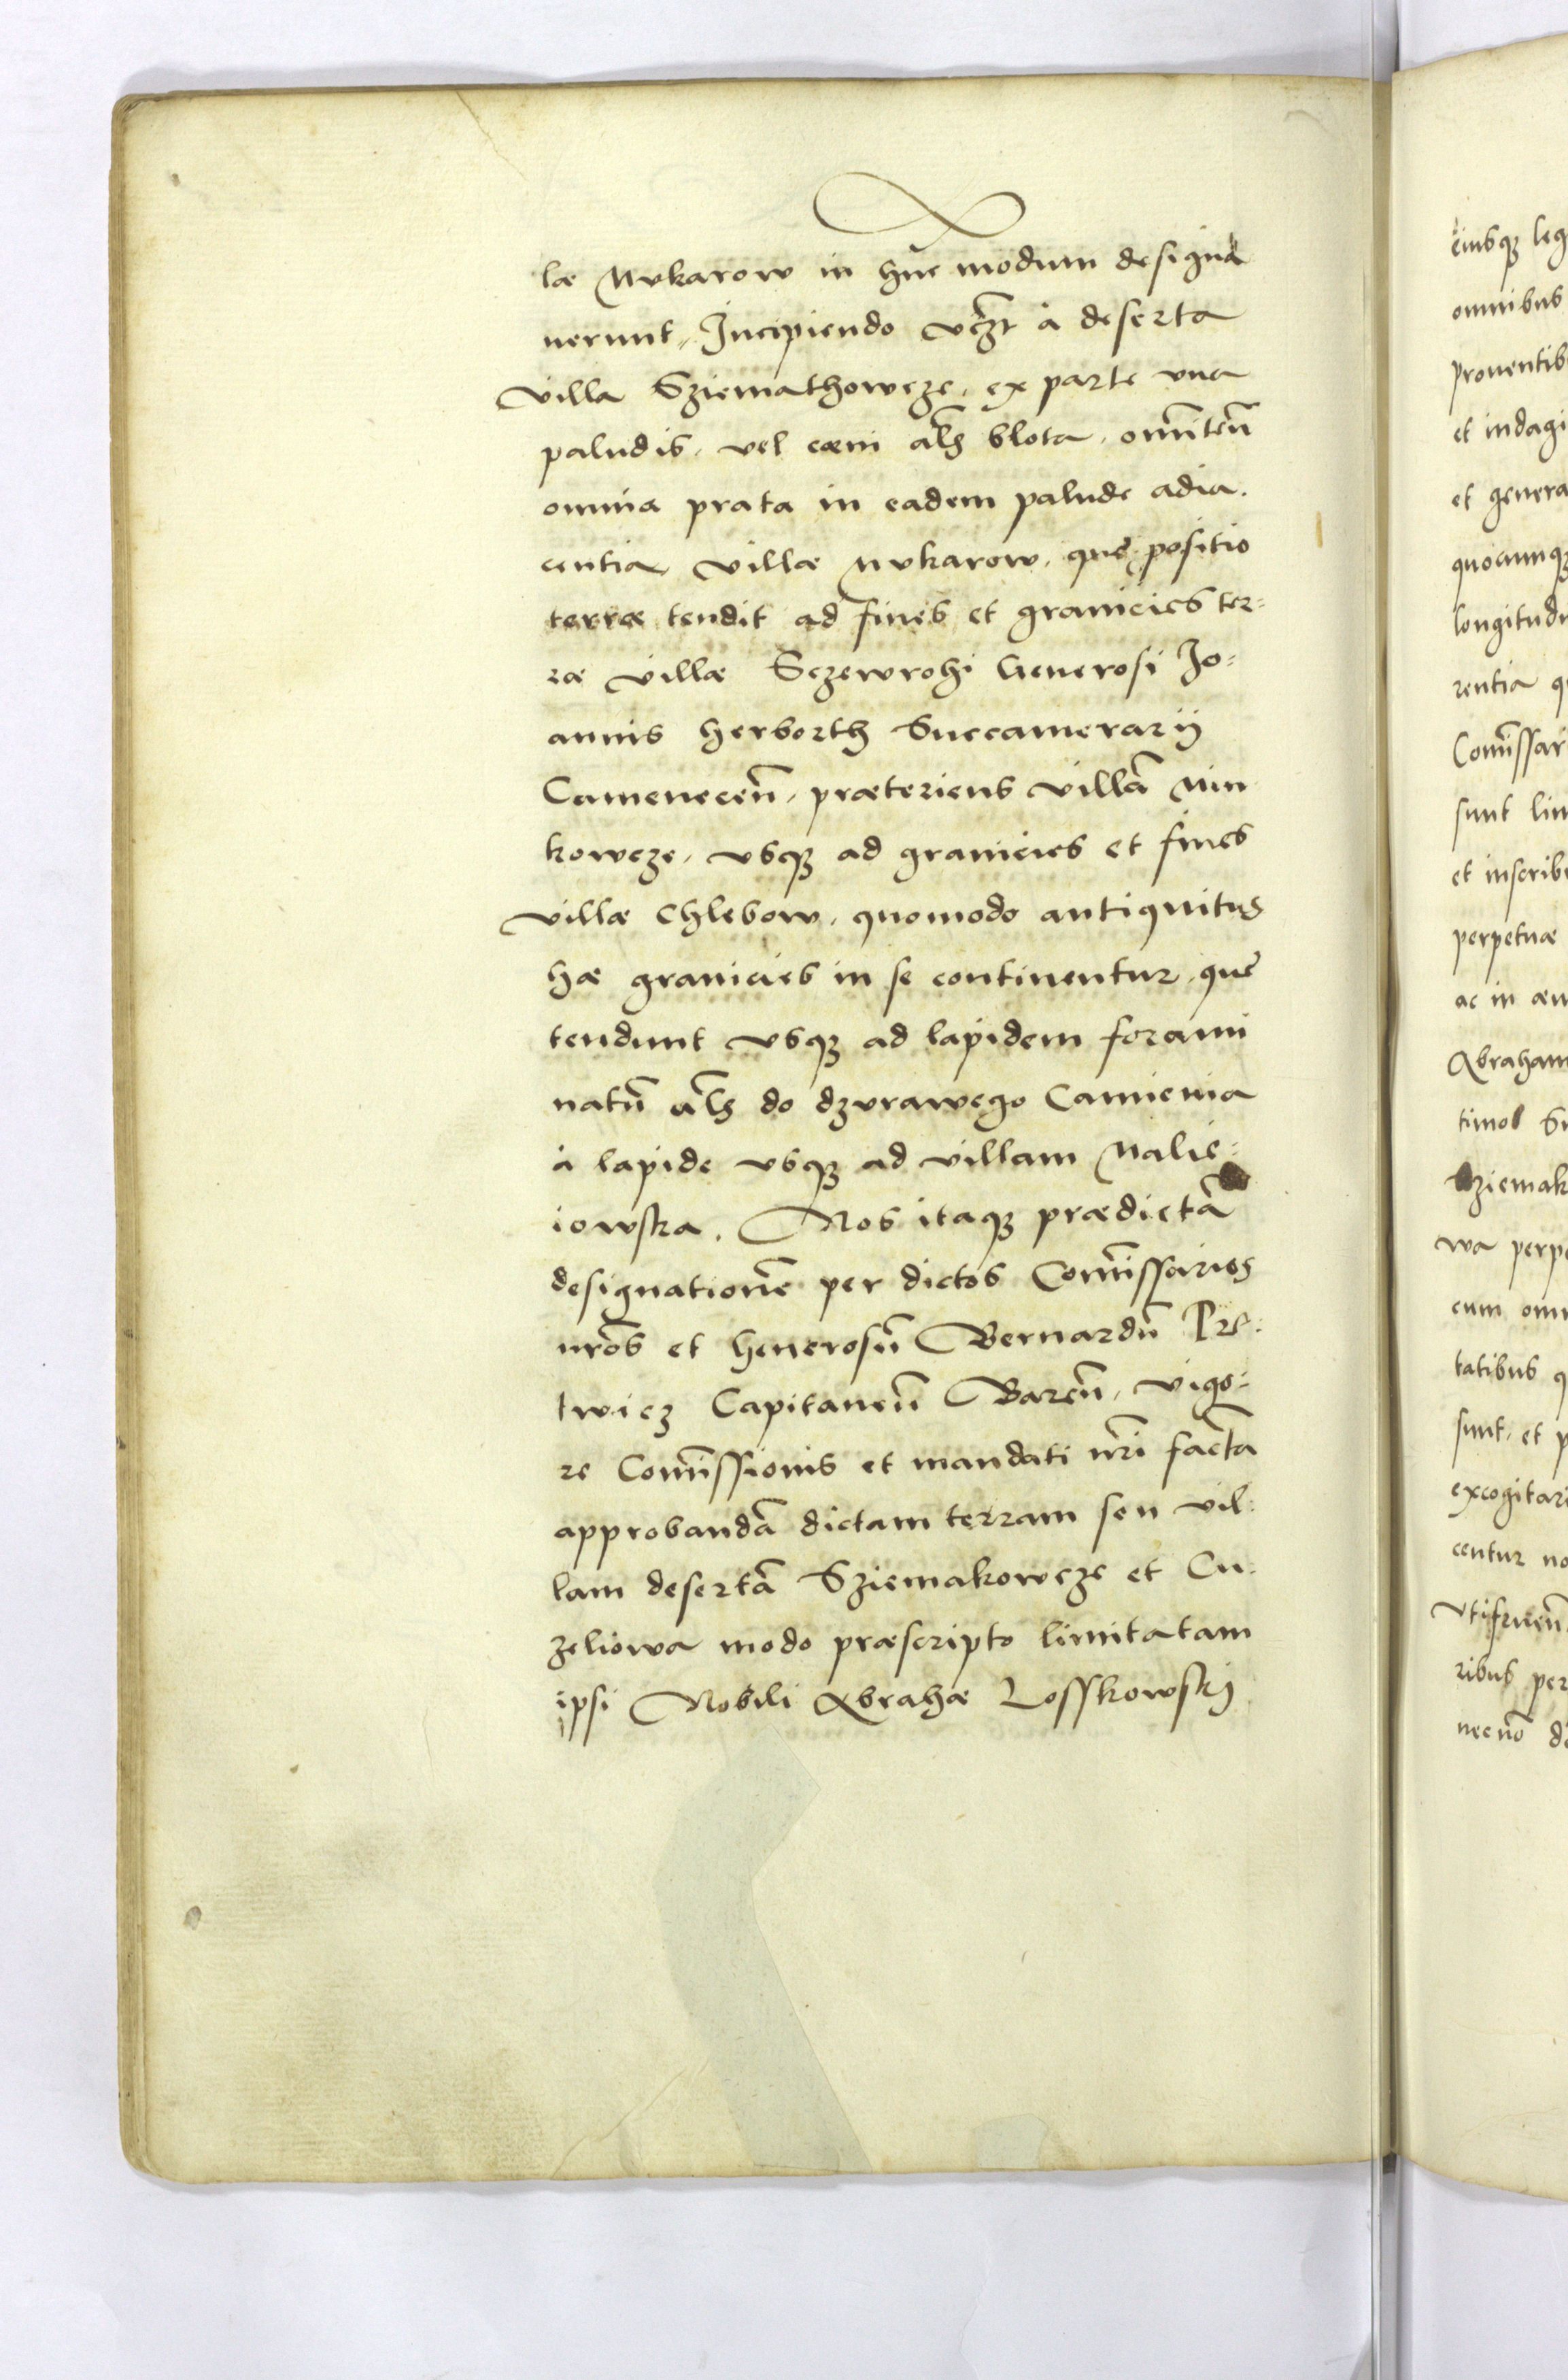 læ Mukarow in hūc modum designa
uerunt, Incipiendo vczt à deserta
villa Sziemathowcze, ex parte vna
paludis, vel cœni aľs blota, omīteñ
omnia prata in eadem palude adia.
centia villæ Mukarow, quę positio
terræ tendit ad fines et granicies ter:
ræ villæ Sczewrohi Generosi Jo:
annis Herborth Succamerarij
Cameneceñ, præteriens villā Min
kowcze, vsq3 ad granicies et fines
villæ Chlebow, quomodo antiquitus
hæ granicies in se continentur, quę
tendunt vsq3 ad lapidem forami
natū aľs do dzvrawego Camienia
à lapide vsq3 ad villam Malie:
iowska. Nos itaq3 prædictā
designationē per dictos Com̄issarios
nr̄os et Generosū Bernardū Pre:
twicz Capitaneū Bareñ, vigo:
re Com̄issionis et mandati nr̄i factā
approbandā dictam terram seu vil:
lam desertā Sziemakowcze et Cu:
zeliowa modo præscripto limitatam
ipsi Nobili Abrahæ Losskowskij
eiusq3 leg
omnibus
prouentib
et indagi
et genera
quocumq3
longitudi
rentia q
Com̄issar
sunt lim
et inscrib
perpetuæ
ac in æu
Abraham
timol Su
Sziemak
wa perpe
cum omn
tatibus q
sunt, et p
excogitari
centur no
vtifrueñ
ribus per
necnō de